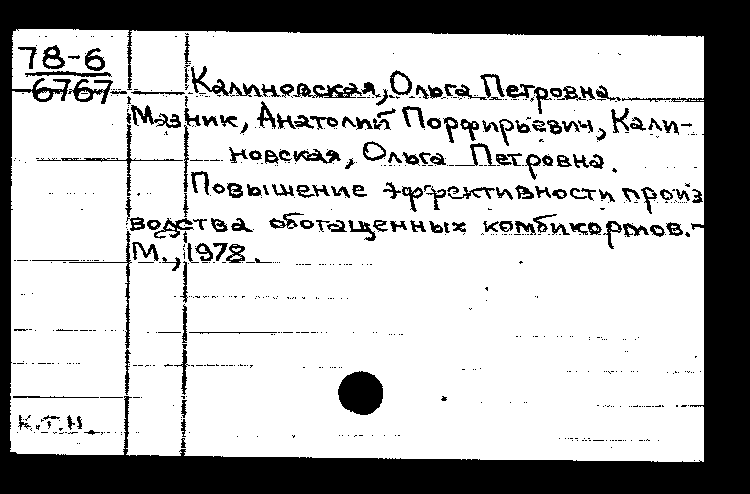 78-6
6767
Калиновская, Ольга Петровна
Мазник, Анатолий Порфирьевич, Кали-
новская, Ольга Петровна.
Повышение эффективности произ
водства обогащенных комбикормов.-
М., 1978.
К.Т.Н.